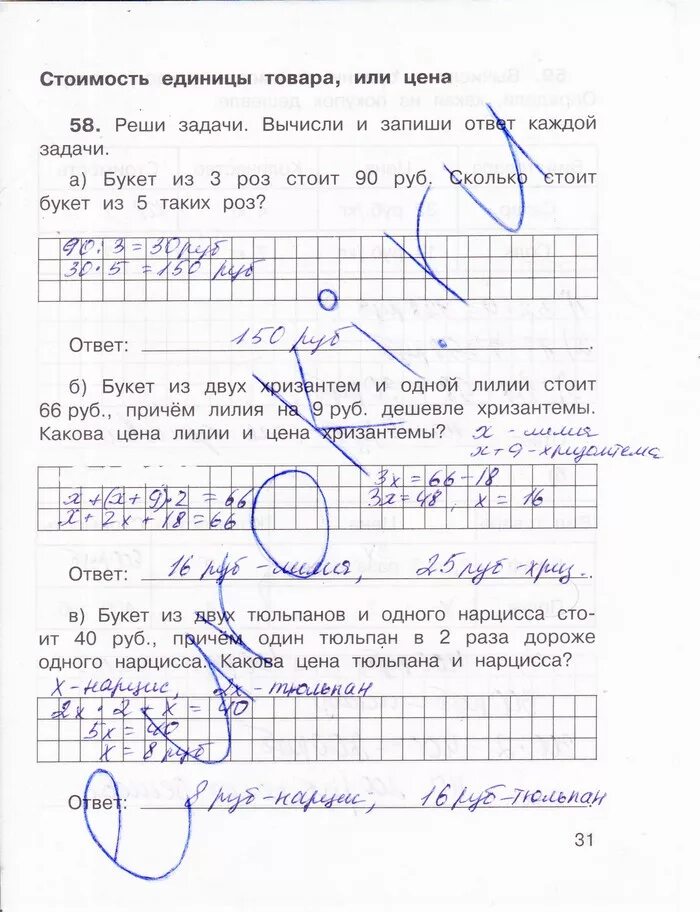 Стоимость единицы товара, или цена
58. Реши задачи. Вычисли и запиши ответ каждой
задачи.
а) Букет из 3 роз стоит 90 руб. Сколько стоит
букет из 5 таких роз?
90 : 3 = 30 руб
30 · 5 = 150 руб
Ответ: 150 руб
б) Букет из двух хризантем и одной лилии стоит
66 руб., причём лилия на 9 руб. дешевле хризантемы.
Какова цена лилии и цена хризантемы? х - лилия
х + 9 - хризонтема
3х = 66 - 18
х + (х + 9) · 2 = 66 3х = 48, х = 16
х + 2х + 18 = 66
Ответ: 16 руб - лилия, 25 руб - хриз.
в) Букет из двух тюльпанов и одного нарцисса сто-
ит 40 руб., причём один тюльпан в 2 раза дороже
одного нарцисса. Какова цена тюльпана и нарцисса?
х - нарцис, 2х - тюльпан
2х · 2 + х = 40
5х = 40
х = 8 руб
Ответ: 8 руб - нарцис, 16 руб - тюльпан
31